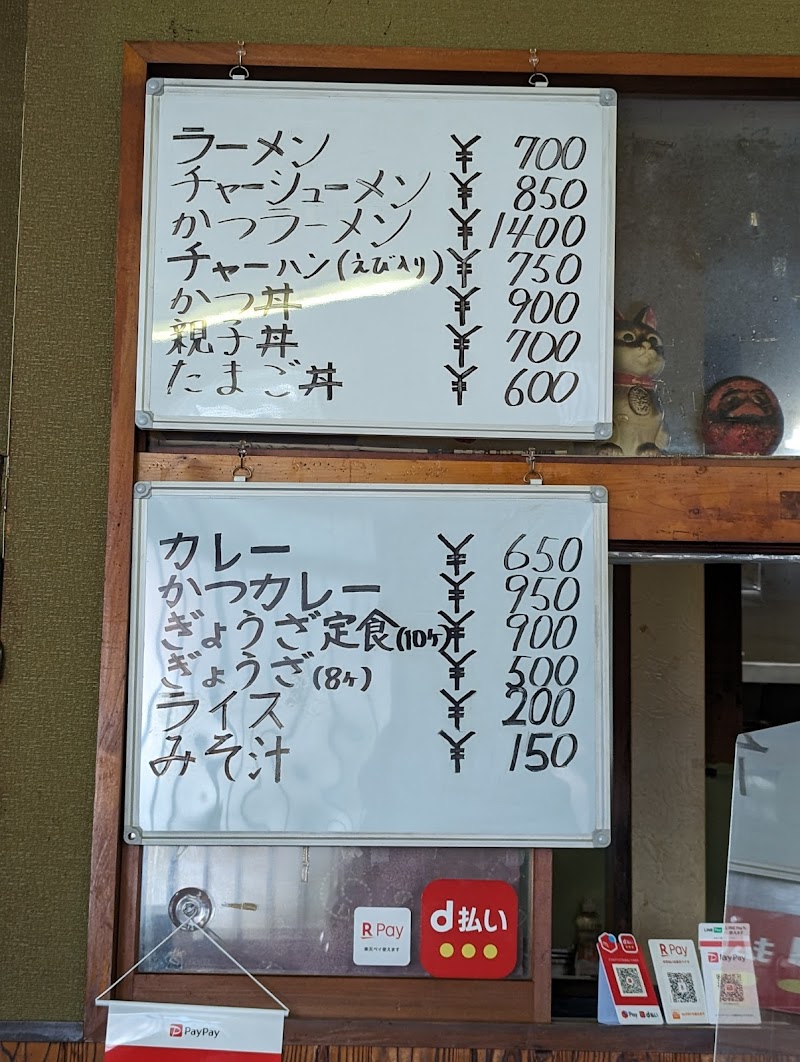 ラーメン ¥ 700
チャーシューメン ¥ 850
かつラーメン ¥ 1400
チャーハン(えび入り) ¥ 750
かつ丼 ¥ 900
親子丼 ¥ 700
たまご丼 ¥ 600
カレー ¥ 650
かつカレー ¥ 950
ぎょうざ定食(10ヶ) ¥ 900
ぎょうざ(8ヶ) ¥ 500
ライス ¥ 200
みそ汁 ¥ 150
R Pay
楽天ペイ使えます
d払い
R Pay
PayPay
PayPay